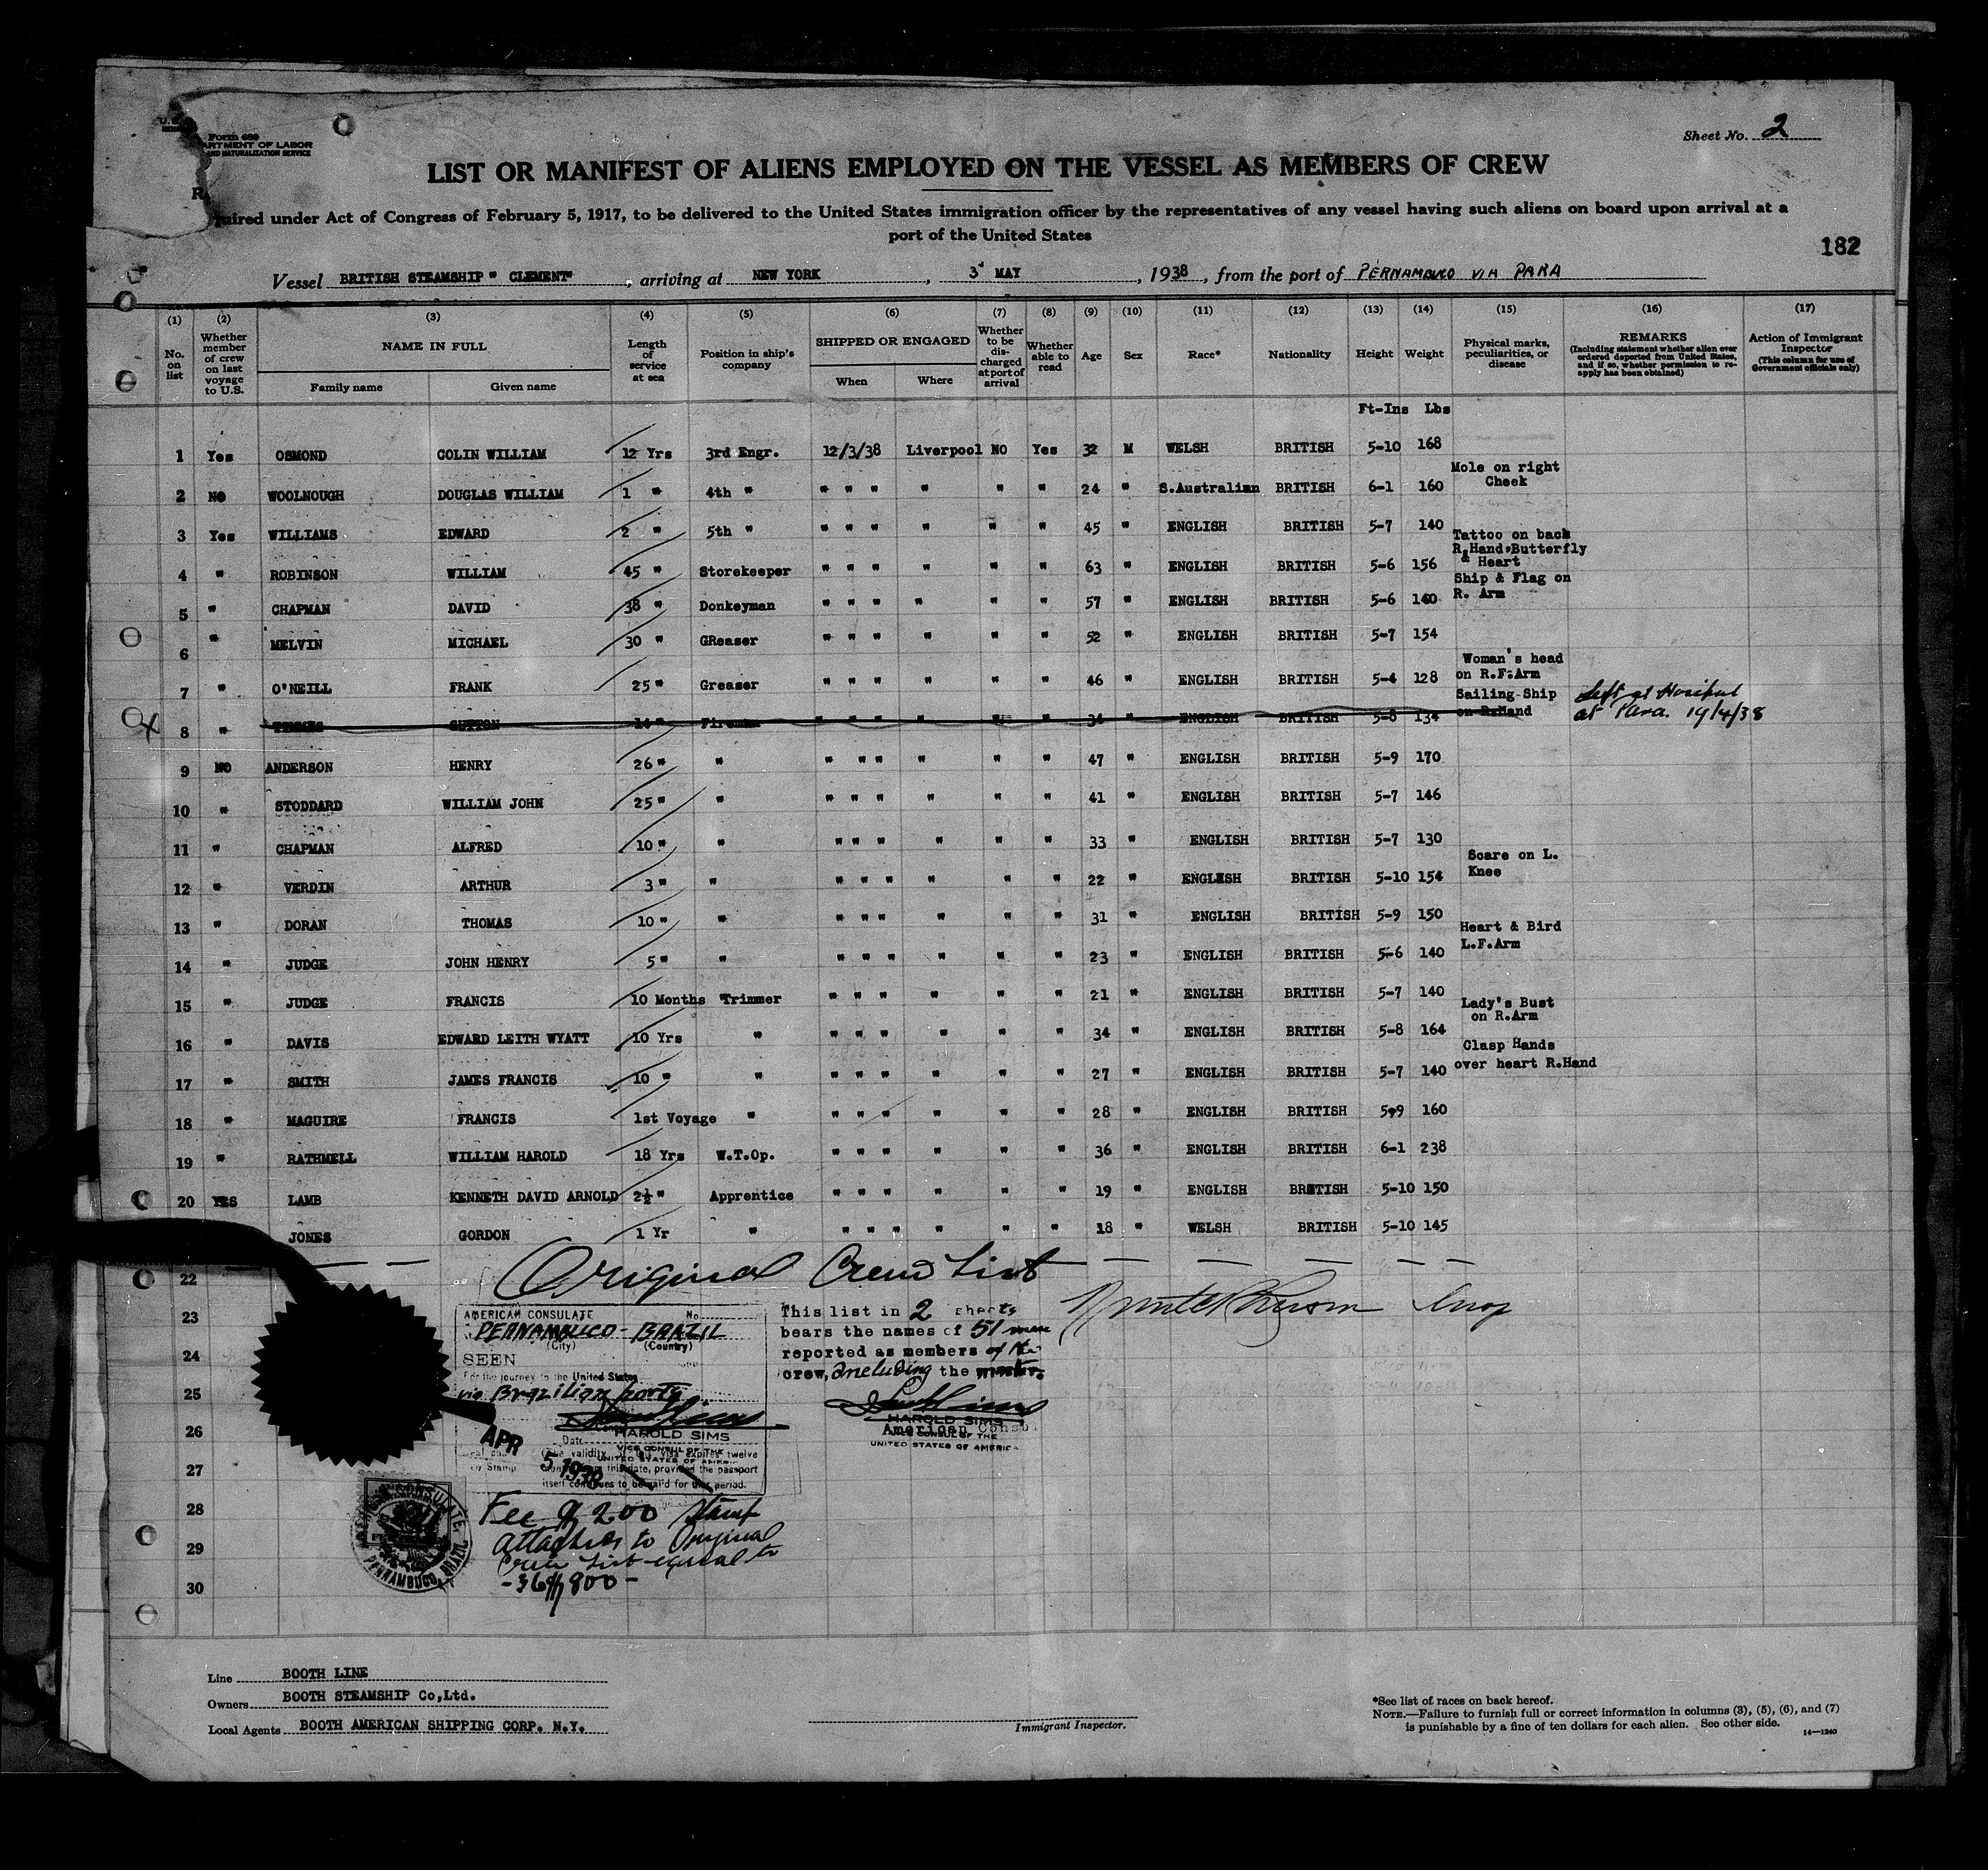 Form 689
U.S. DEPARTMENT OF LABOR
AND NATURALIZATION SERVICE
Sheet No. 2
LIST OR MANIFEST OF ALIENS EMPLOYED ON THE VESSEL AS MEMBERS OF CREW
quired under Act of Congress of February 5, 1917, to be delivered to the United States immigration officer by the representatives of any vessel having such aliens on board upon arrival at a
port of the United States
182
Vessel BRITISH STEAMSHIP" CLEMENT", arriving at NEW YORK, 3d MAY, 1938, from the port of PERNAMBUCO VIA PARA
(1) (2) (3) (4) (5) (6) (7) (8) (9) (10) (11) (12) (13) (14) (15) (16) (17)
No. on list
Whether member of crew on last voyage to U.S.
NAME IN FULL
Family name Given name
Length of service at sea
Position in ship's company
SHIPPED OR ENGAGED
When Where
Whether to be discharged at port of arrival
Whether able to read
Age
Sex
Race*
Nationality
Height
Weight
Physical marks, peculiarities, or disease
REMARKS
(Including statement whether alien ever ordered deported from United States, and if so, whether permission to re-apply has been obtained)
Action of Immigrant Inspector
(This column for use of Government officials only)
Ft-Ins Lbs
1 Yes OSMOND COLIN WILLIAM 12 Yrs 3rd Engr. 12/3/38 Liverpool NO Yes 32 M WELSH BRITISH 5-10 168
2 NO WOOLNOUGH DOUGLAS WILLIAM 1 " 4th " " " " " " " 24 " S.Australian BRITISH 6-1 160 Mole on right Cheek
3 Yes WILLIAMS EDWARD 2 " 5th " " " " " " " 45 " ENGLISH BRITISH 5-7 140
4 " ROBINSON WILLIAM 45 " Storekeeper " " " " " " 63 " ENGLISH BRITISH 5-6 156 Tattoo on back R.Hand.Butterfly & Heart
5 " CHAPMAN DAVID 38 " Donkeyman " " " " " " 57 " ENGLISH BRITISH 5-6 140 Ship & Flag on R. Arm
6 " MELVIN MICHAEL 30 " GReaser " " " " " " 52 " ENGLISH BRITISH 5-7 154
7 " O'NEILL FRANK 25 " Greaser " " " " " " 46 " ENGLISH BRITISH 5-4 128 Woman's head on R.F.Arm
8 " SUTTON 14 " Fireman " " " " " " 34 " ENGLISH BRITISH 5-8 134 Sailing Ship on R.Hand Left at Hosipal at Para. 19/4/38
9 NO ANDERSON HENRY 26 " " " " " " " " 47 " ENGLISH BRITISH 5-9 170
10 " STODDARD WILLIAM JOHN 25 " " " " " " " " 41 " ENGLISH BRITISH 5-7 146
11 " CHAPMAN ALFRED 10 " " " " " " " " 33 " ENGLISH BRITISH 5-7 130
12 " VERDIN ARTHUR 3 " " " " " " " " 22 " ENGLISH BRITISH 5-10 154 Scare on L. Knee
13 " DORAN THOMAS 10 " " " " " " " " 31 " ENGLISH BRITISH 5-9 150
14 " JUDGE JOHN HENRY 5 " " " " " " " " 23 " ENGLISH BRITISH 5-6 140 Heart & Bird L.F.Arm
15 " JUDGE FRANCIS 10 Months Trimmer " " " " " " 21 " ENGLISH BRITISH 5-7 140
16 " DAVIS EDWARD LEITH WYATT 10 Yrs " " " " " " " 34 " ENGLISH BRITISH 5-8 164 Lady's Bust on R.Arm
17 " SMITH JAMES FRANCIS 10 " " " " " " " " 27 " ENGLISH BRITISH 5-7 140 Clasp Hands over heart R.Hand
18 " MAGUIRE FRANCIS 1st Voyage " " " " " " " 28 " ENGLISH BRITISH 5-9 160
19 " RATHMELL WILLIAM HAROLD 18 Yrs W.T.Op. " " " " " " 36 " ENGLISH BRITISH 6-1 238
20 YES LAMB KENNETH DAVID ARNOLD 2½ " Apprentice " " " " " " 19 " ENGLISH BRITISH 5-10 150
JONES GORDON 1 Yr " " " " " " " 18 " WELSH BRITISH 5-10 145
22
23
24
25
26
27
28
29
30
Original Crew List
AMERICAN CONSULATE No.
PERNAMBUCO - BRAZIL
(City) (Country)
SEEN
For the journey to the United States
via Brazilian ports
HAROLD SIMS
VICE CONSUL OF THE
UNITED STATES OF AMERICA
Date
APR 5 1938
validity expires twelve
this date, provided the passport
itself continues to be valid for this period.
This list in 2 sheets
bears the names of 51 men
reported as members of the
crew, including the master.
HAROLD SIMS
American Consul
CONSUL OF THE
UNITED STATES OF AMERICA
AMERICAN CONSULATE
PERNAMBUCO, BRAZIL
Fee of 2.00 stamp
attached to Original
Crew List equal to
-36$800-
Line BOOTH LINE
Owners BOOTH STEAMSHIP Co,Ltd.
Local Agents BOOTH AMERICAN SHIPPING CORP. N.Y.
Immigrant Inspector.
*See list of races on back hereof.
NOTE.—Failure to furnish full or correct information in columns (3), (5), (6), and (7)
is punishable by a fine of ten dollars for each alien. See other side.
14—1240